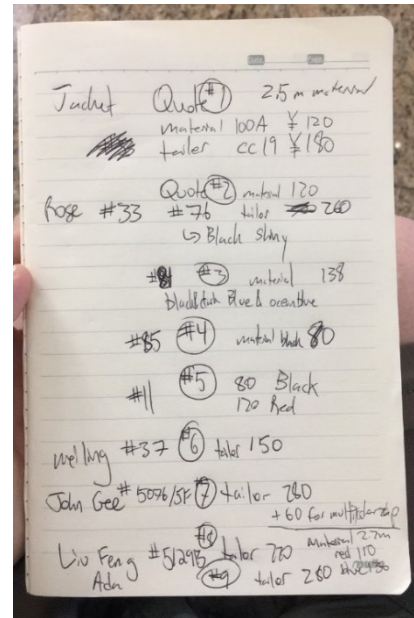 Jacket Quote #1 2.5 m material
material 100A ¥ 120
tailor CC19 ¥180
Quote #2 material 120
Rose #33 #76 tailor 260
↳ Black shiny
#3 material 138
black & dark Blue & ocean blue
#85 #4 material black 80
#11 #5 80 Black
120 Red
#37 #6 tailor 150
John Gee #5076/5F #7 tailor 280
+60 for multi
Liu Feng #5129B #8 tailor 220
material 2.2m
red 110
Ada #9 tailor 280